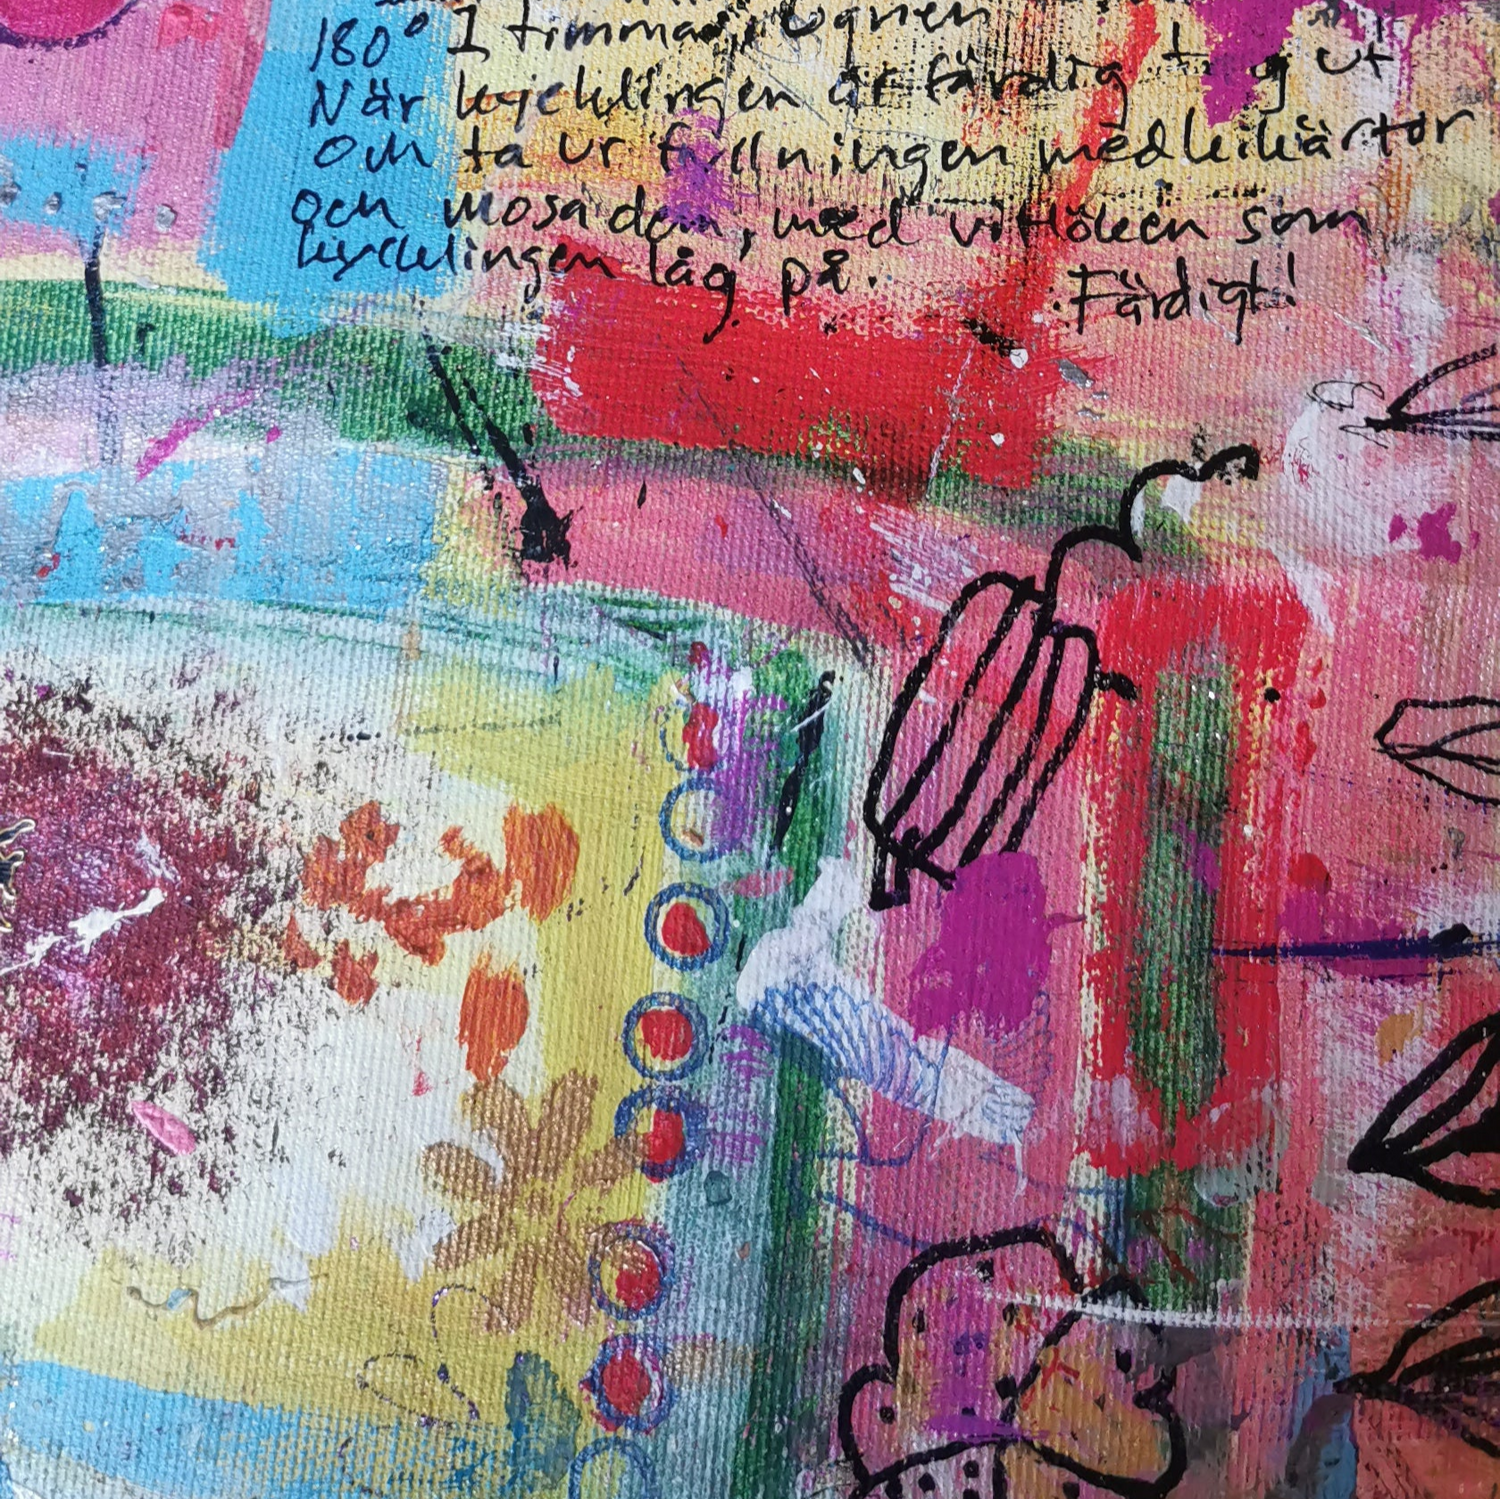 180° I timma, Ugnen
När kycklingen är färdig tag ut
och ta ur fyllningen med kikärtor
och mosa dem, med vitlöken som
kycklingen låg på. Färdigt!